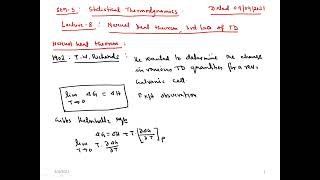 SEM-5: Statistical Thermodynamics Dated 09/09/2021
Lecture-8: Nernst heat theorem 3rd law of TD
Nernst heat theorem:
1902: T.W. Richards: He wanted to determine the change
in various TD quantities for a rev.
Galvanic cell.
lim T→0 ΔG = ΔH Exptl observation
Gibbs Helmholtz eqn
ΔG = ΔH + T [∂ΔG/∂T]P
lim T→0 T. ∂ΔG/∂T